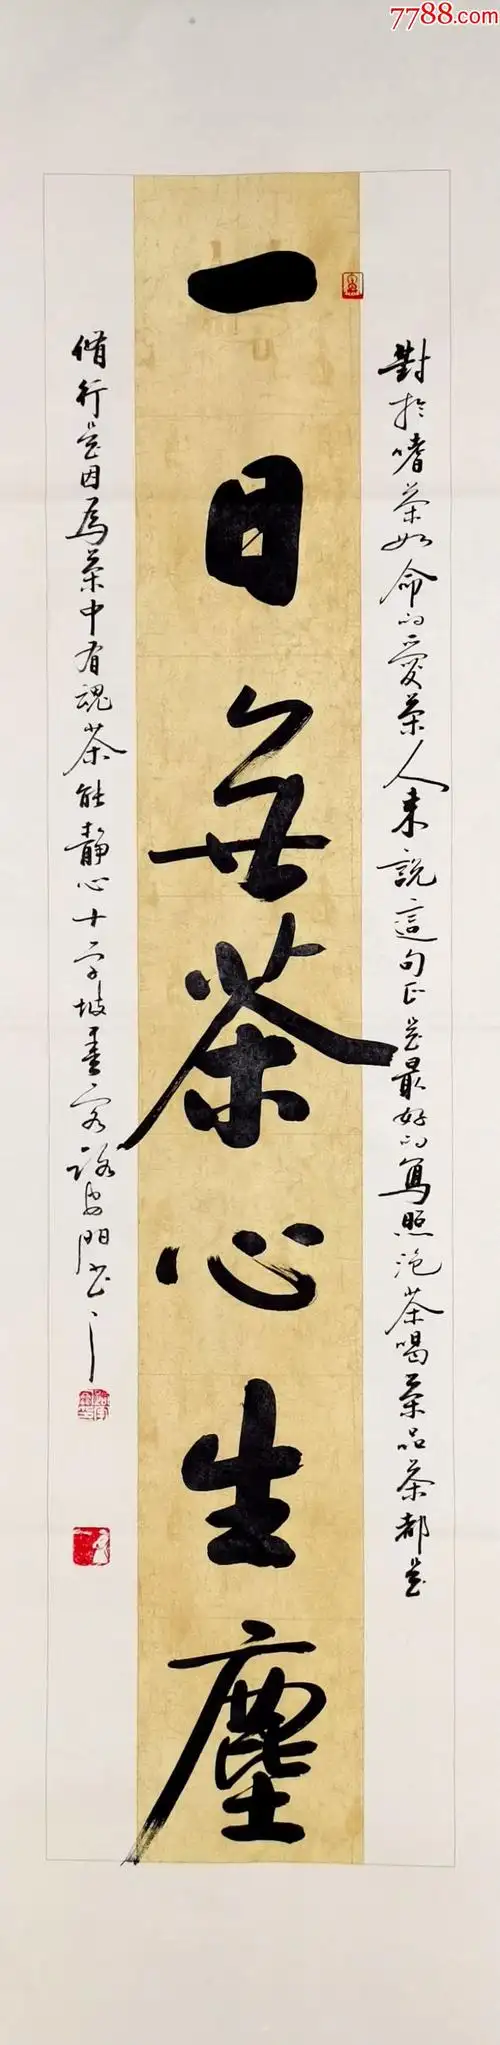 7788.com
對於嗜茶如命的愛茶人來說這句正是最好的寫照泡茶喝茶品茶都是
一日無茶心生塵
脩行是因爲茶中有魂茶能靜心十字坡